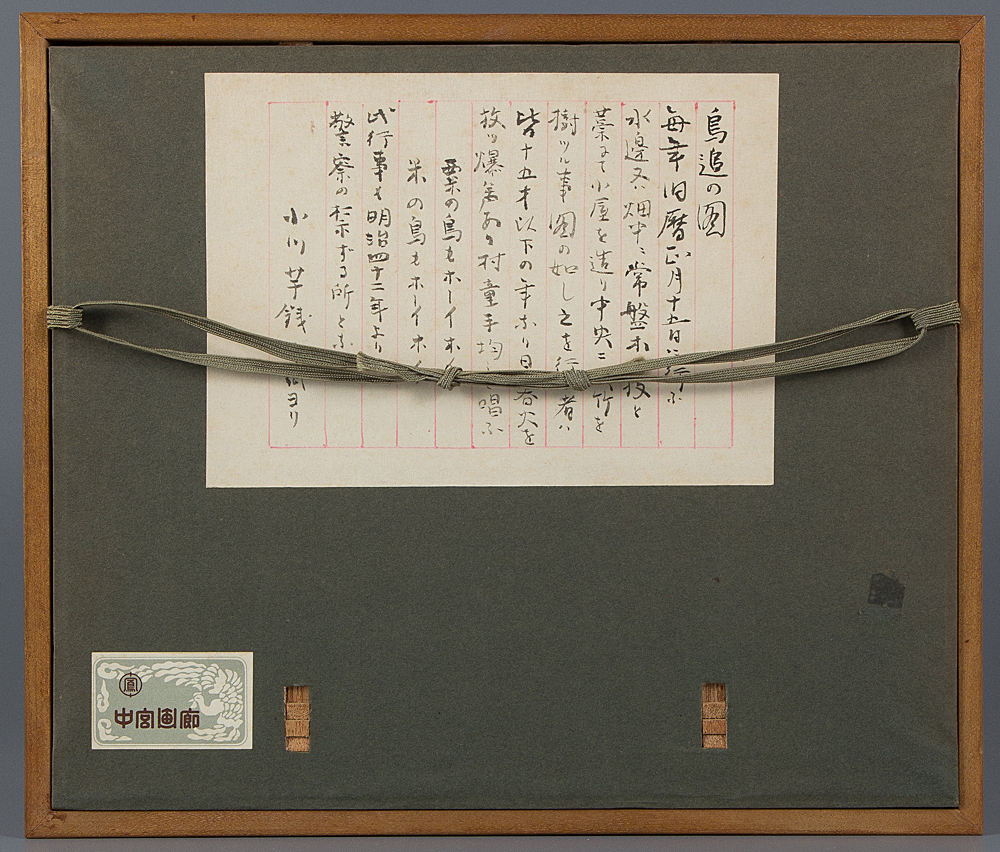 鳥追の図
毎年旧暦正月十五日ニ行ふ
水邊又ハ畑中ニ常盤木 枝と
藁にて小屋を造り中央ニ 竹を
樹ツル事図の如し之を行 者ハ
皆十五才以下の年なり日 春火を
放ツ爆 あり村童手 唱ふ
粟の鳥もホーイホ
米の鳥もホーイホ
此行事も明治四十二年より
警察の禁ずる所とな
小川芋銭 ヨリ
鳳
中宮画廊